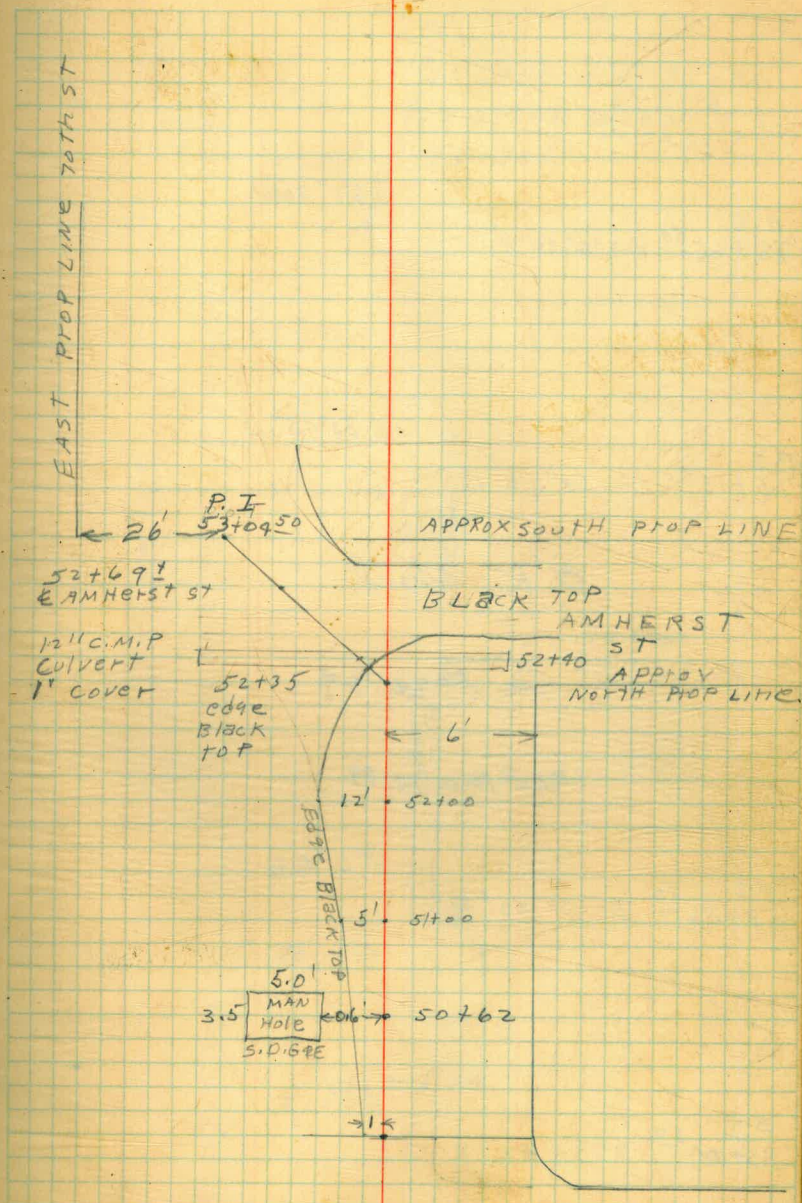 EAST PROP LINE 70th ST
26'
P. I
53+04 50
APPROX SOUTH PROP LINE
52+69 ±
℄ AMHERST ST
BLACK TOP
AMHERST
ST
12" C.M.P
Culvert
1' Cover
52+35
edge
Black
top
52+40
APPROX
NORTH PROP LINE.
6'
12'
52+00
Edge Black Top
5'
51+00
5.0'
3.5
MAN
Hole
0.6'
50+62
S.D.G&E
1